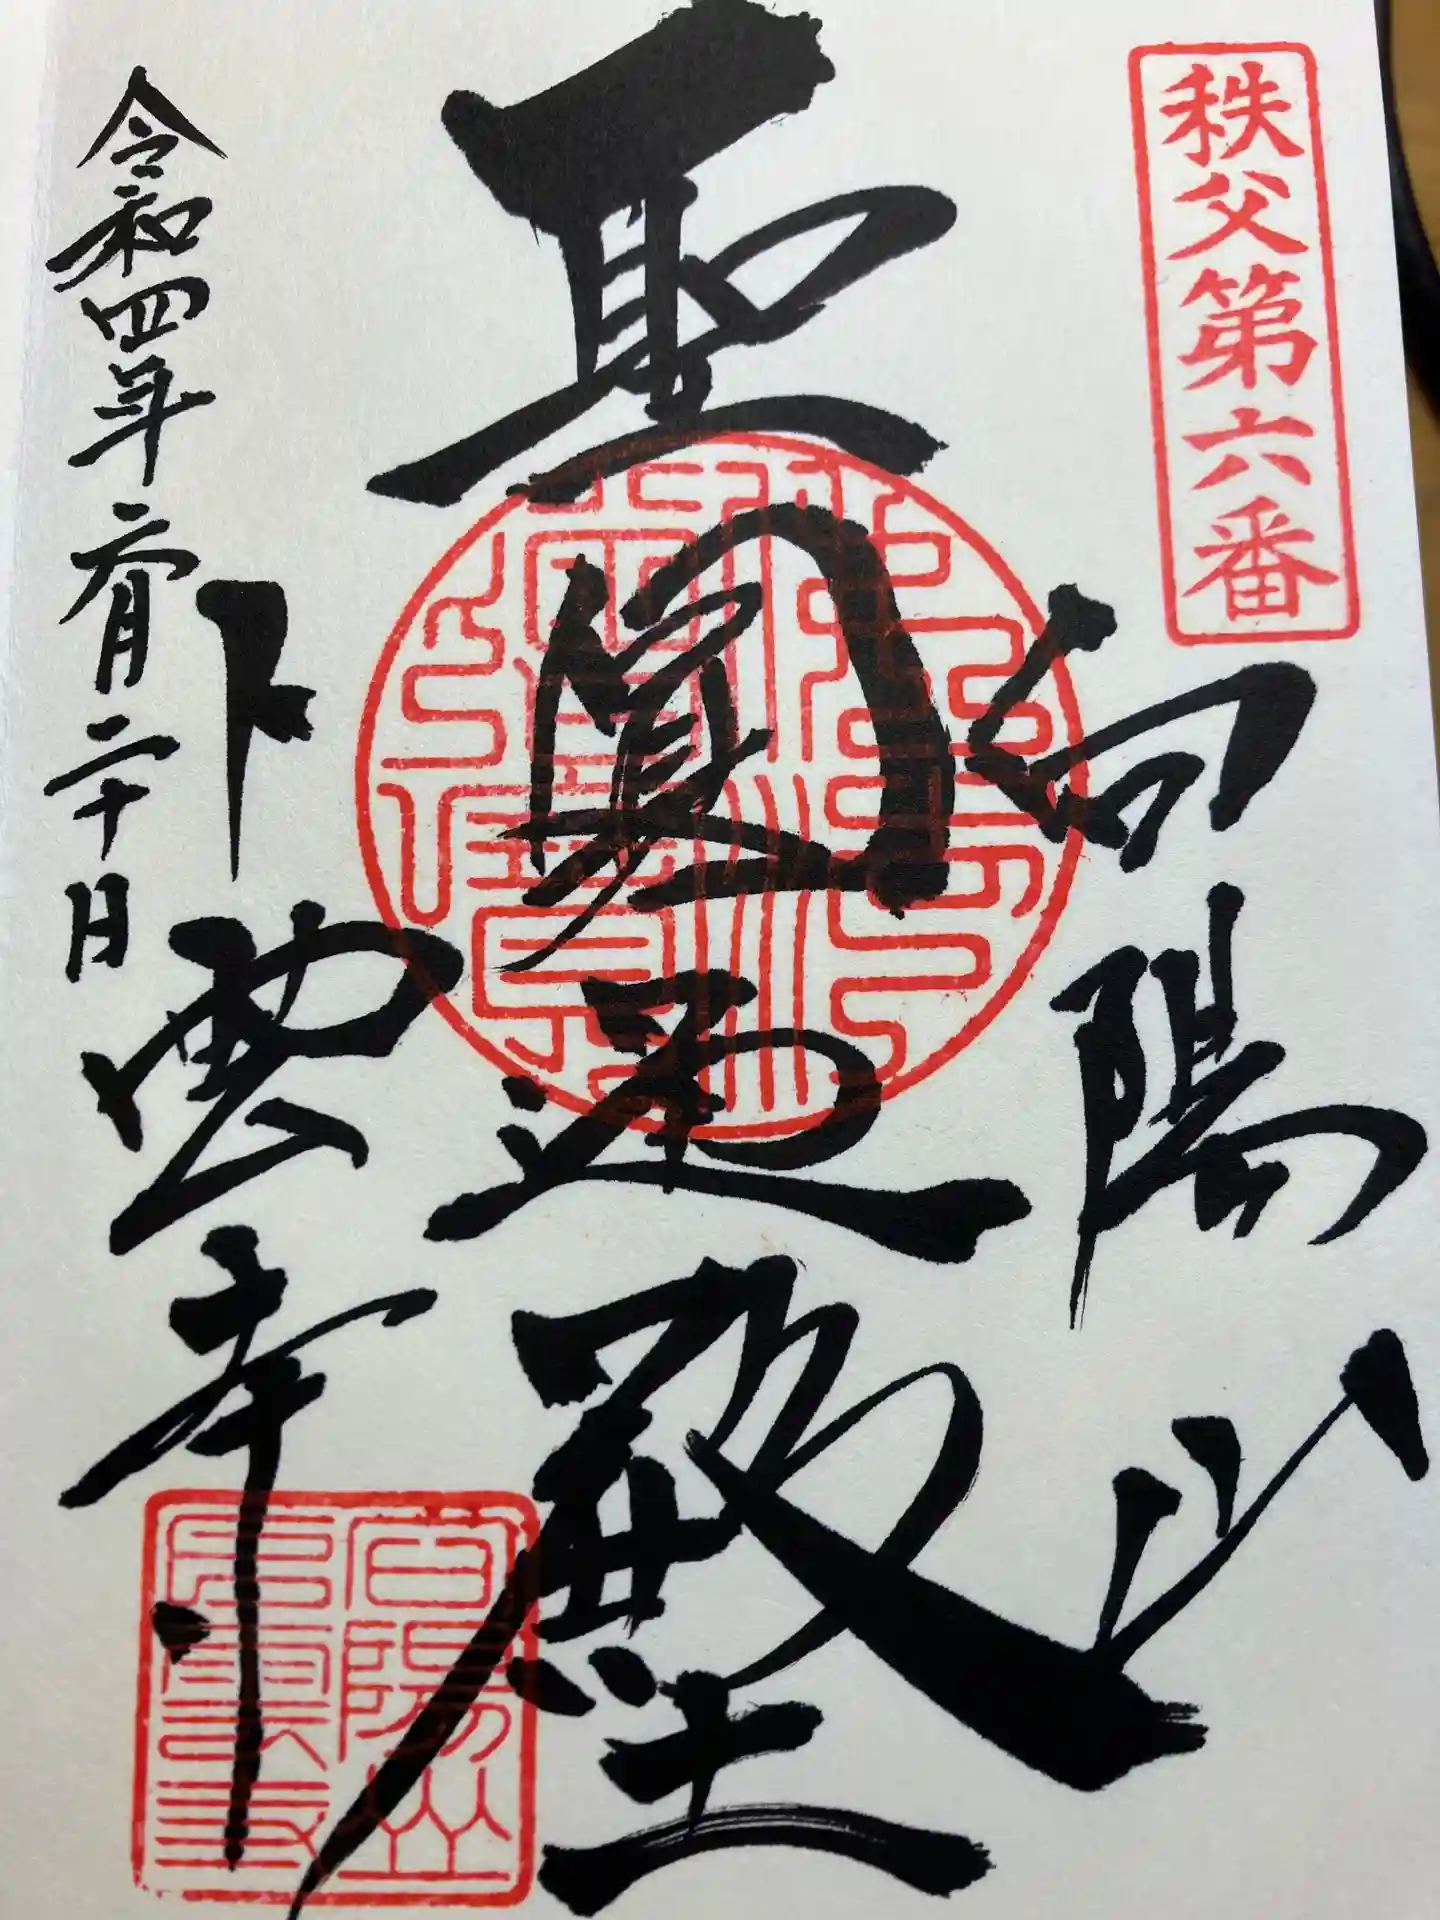 秩父第六番
向陽山
聖圓通殿
卜雲寺
令和四年六月二十日
向陽山
卜雲寺